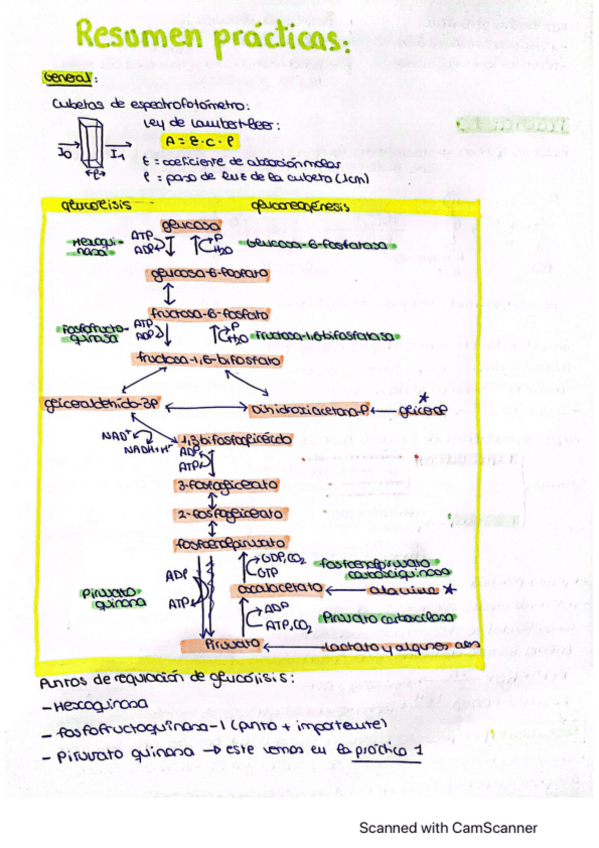 Resumen prácticas:
General:
Cubetas de espectrofotómetro:
Ley de Lambert-Beer:
A = E · C · l
I0
I1
l
E = coeficiente de absorción molar
l = paso de luz de la cubeta (1cm)
glucólisis gluconeogénesis
glucosa
Hexoqui-
nasa
ATP
ADP
P
H2O
Glucosa-6-fosfatasa
glucosa-6-fosfato
fructosa-6-fosfato
Fosfofructo-
quinasa
ATP
ADP
P
H2O
Fructosa-1,6-bifosfatasa
fructosa-1,6-bifosfato
gliceraldehído-3P
Dihidroxiacetona-P
glicerol
NAD+
NADH+H+
1,3 bifosfoglicérido
ADP
ATP
3-fosfoglicerato
2-fosfoglicerato
fosfoenolpiruvato
GDP, CO2
GTP
fosfoenolpiruvato
carboxiquinasa
ADP
ATP
Piruvato
quinasa
oxalacetato
alanina
ADP
ATP, CO2
Piruvato carboxilasa
Piruvato
Lactato y algunos aas
Puntos de regulación de glucólisis:
- Hexoquinasa
- fosfofructoquinasa-1 (punto + importante)
- Piruvato quinasa → este vemos en la práctica 1
Scanned with CamScanner